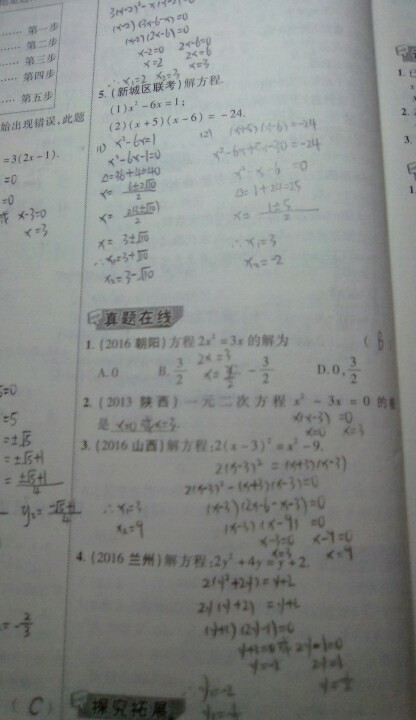 第一步
第二步
第三步
第四步
第五步
始出现错误,此题
=3(2x-1).
=0
=0
x-3=0
x=3
=±√5
=-2/3
(C)
(x-2)(2x-6)=0
x-2=0 2x-6=0
x=2 2x=6
x=3
∴x₁=2 x₂=3
5.(新城区联考)解方程.
(1)x²-6x=1;
(2)(x+5)(x-6)=-24.
(1) x²-6x=1
x²-6x-1=0
Δ=36+4=40
x=3±√10
∴x₁=3+√10
x₂=3-√10
(2) (x+5)(x-6)=-24
x²-6x+5x-30=-24
x²-x-6=0
Δ=1+24=25
x=(1±5)/2
∴x₁=3
x₂=-2
真题在线
1.(2016朝阳)方程2x²=3x的解为 (B)
2x=3
x=3/2
A.0 B.3/2 -3/2 D.0,3/2
2.(2013陕西)一元二次方程x²-3x=0的
x(x-3)=0
是 x=0或x=3.
x=0 x=3
3.(2016山西)解方程:2(x-3)²=x²-9.
2(x-3)²=(x+3)(x-3)
2(x-3)²-(x+3)(x-3)=0
(x-3)(2x-6-x-3)=0
(x-3)(x-9)=0
x-3=0 x-9=0
x=3 x=9
∴x₁=3
x₂=9
4.(2016兰州)解方程:2y²+4y=y+2.
2(y²+2y)=y+2
2y(y+2)=y+2
(y+2)(2y-1)=0
y+2=0或2y-1=0
y=-2 2y=1
y=1/2
∴y₁=-2
y₂=1/2
探究拓展